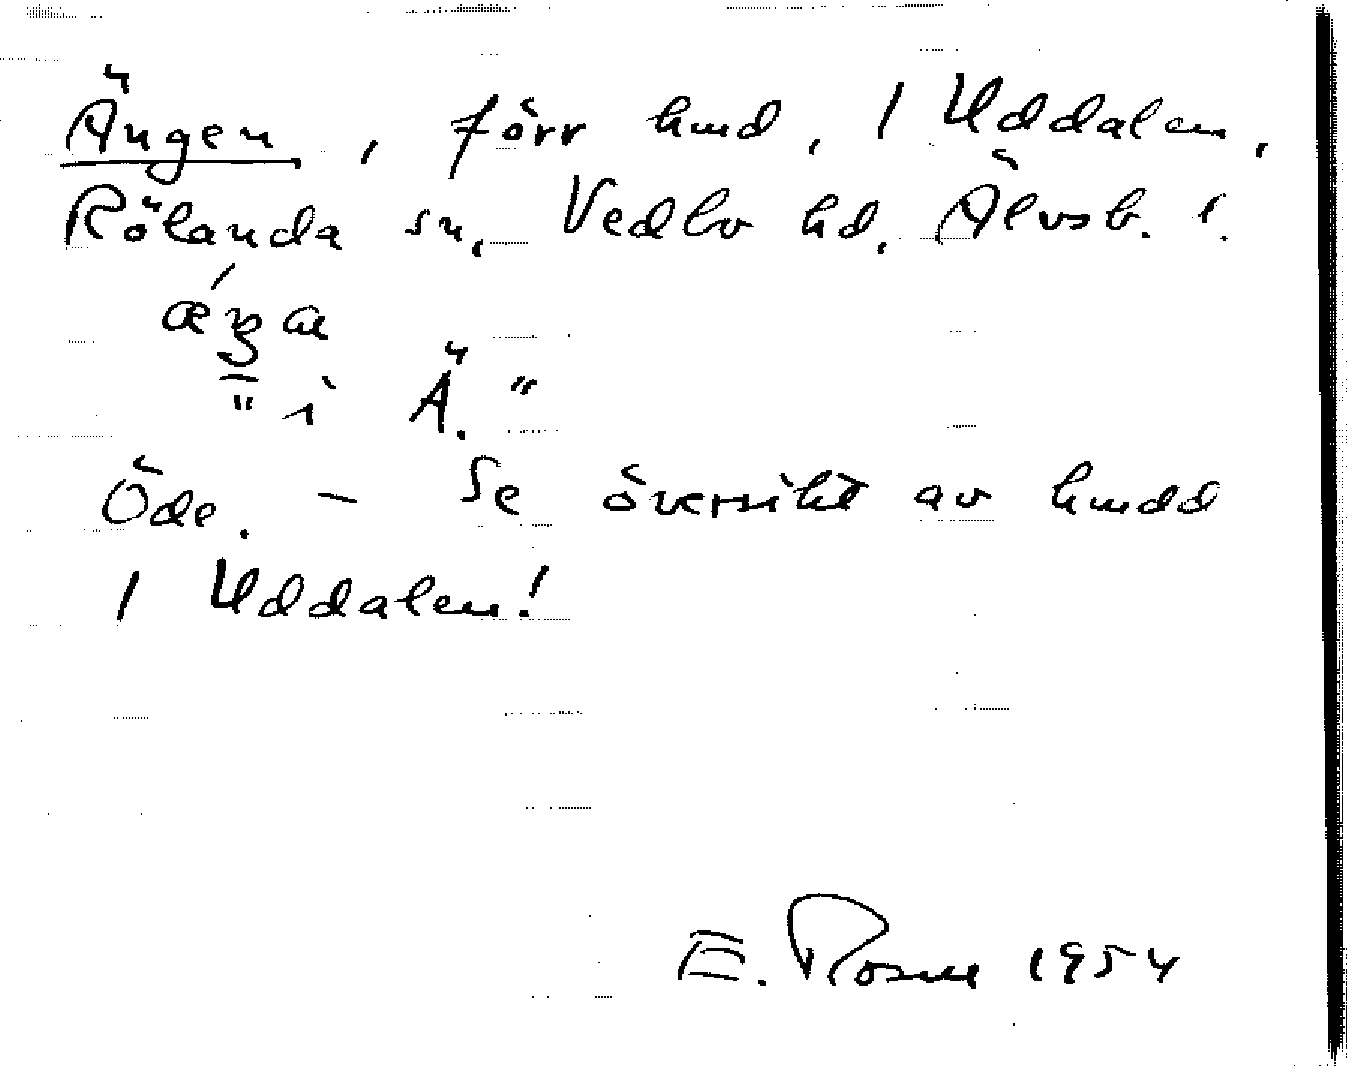 Ängen, förr hmd, 1 Uddalen,
Rölanda sn, Vedbo hd, Älvsb. l.
" i Ä. "
Öde. – Se översikt av hmdd
1 Uddalen!
E. Rosell 1954